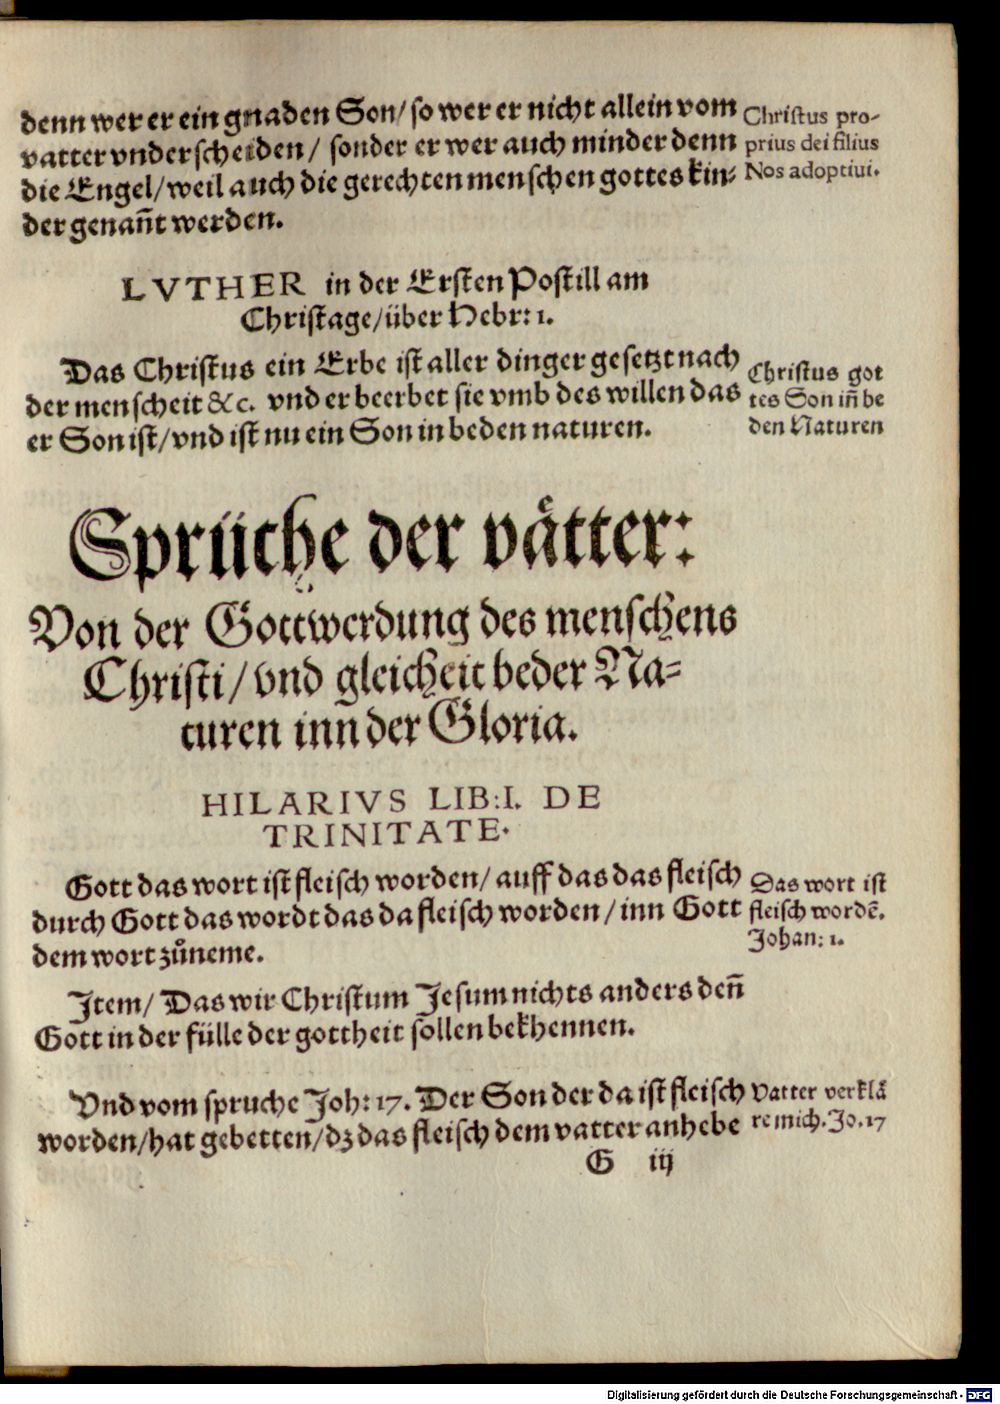 denn wer er ein gnaden Son/ so wer er nicht allein vom
vatter vnderscheiden/ sonder er wer auch minder denn
die Engel/ weil auch die gerechten menschen gottes kin⸗
der genañt werden.
Christus pro-
prius dei filius
Nos adoptiui.
LVTHER in der Ersten Postill am
Christage/ über Hebr: 1.
Das Christus ein Erbe ist aller dinger gesetzt nach
der menscheit &c. vnd er beerbet sie vmb des willen das
er Son ist/ vnd ist nu ein Son in beden naturen.
Christus got
tes Son iñ be
den Naturen
Sprüche der våtter:
Von der Gottwerdung des menschens
Christi/ vnd gleicheit beder Na⸗
turen inn der Gloria.
HILARIVS LIB:I. DE
TRINITATE.
Gott das wort ist fleisch worden/ auff das das fleisch
durch Gott das wordt das da fleisch worden/ inn Gott
dem wort zůneme.
Das wort ist
fleisch wordē.
Johan: 1.
Item/ Das wir Christum Jesum nichts anders deñ
Gott in der fülle der gottheit sollen bekhennen.
Vnd vom spruche Joh: 17. Der Son der da ist fleisch
worden/ hat gebetten/ dz das fleisch dem vatter anhebe
Vatter verklä
re mich. Jo. 17
G iij
Digitalisierung gefördert durch die Deutsche Forschungsgemeinschaft - DFG